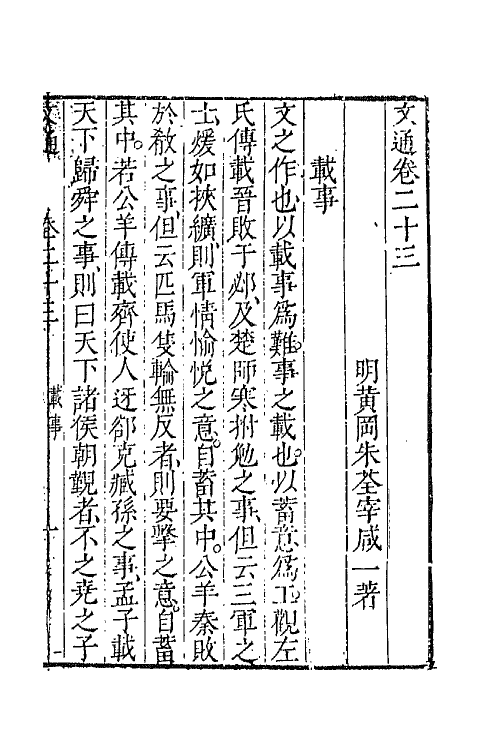 文通卷二十三
明黃岡朱荃宰咸一著
載事
文之作也以載事爲難事之載也以蓄意爲工觀左
氏傳載晉敗于邲及楚師寒拊勉之事但云三軍之
士煖如挾纊則軍情愉悅之意自蓄其中公羊秦敗
於殽之事但云匹馬隻輪無反者則要擊之意自蓄
其中若公羊傳載齊使人迓郤克臧孫之事孟子載
天下歸舜之事則曰天下諸侯朝覲者不之堯之子
文通
卷二十三
載事
一